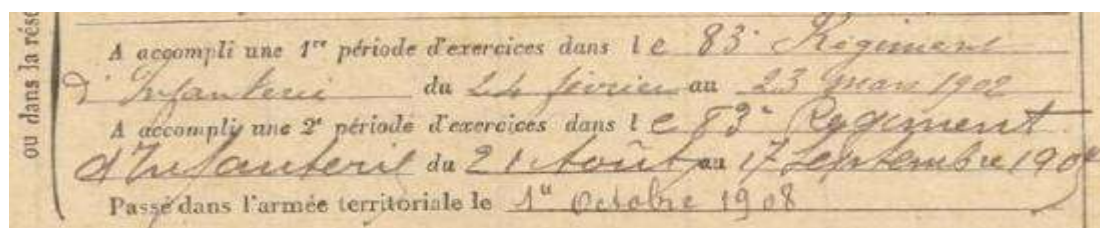 ou dans la rése
A accompli une 1re période d'exercices dans le 83e Régiment
d'Infanterie du 24 février au 23 mars 1902
A accompli une 2e période d'exercices dans le 83e Régiment
d'Infanterie du 21 Août au 17 Septembre
Passé dans l'armée territoriale le 1er Octobre 1908